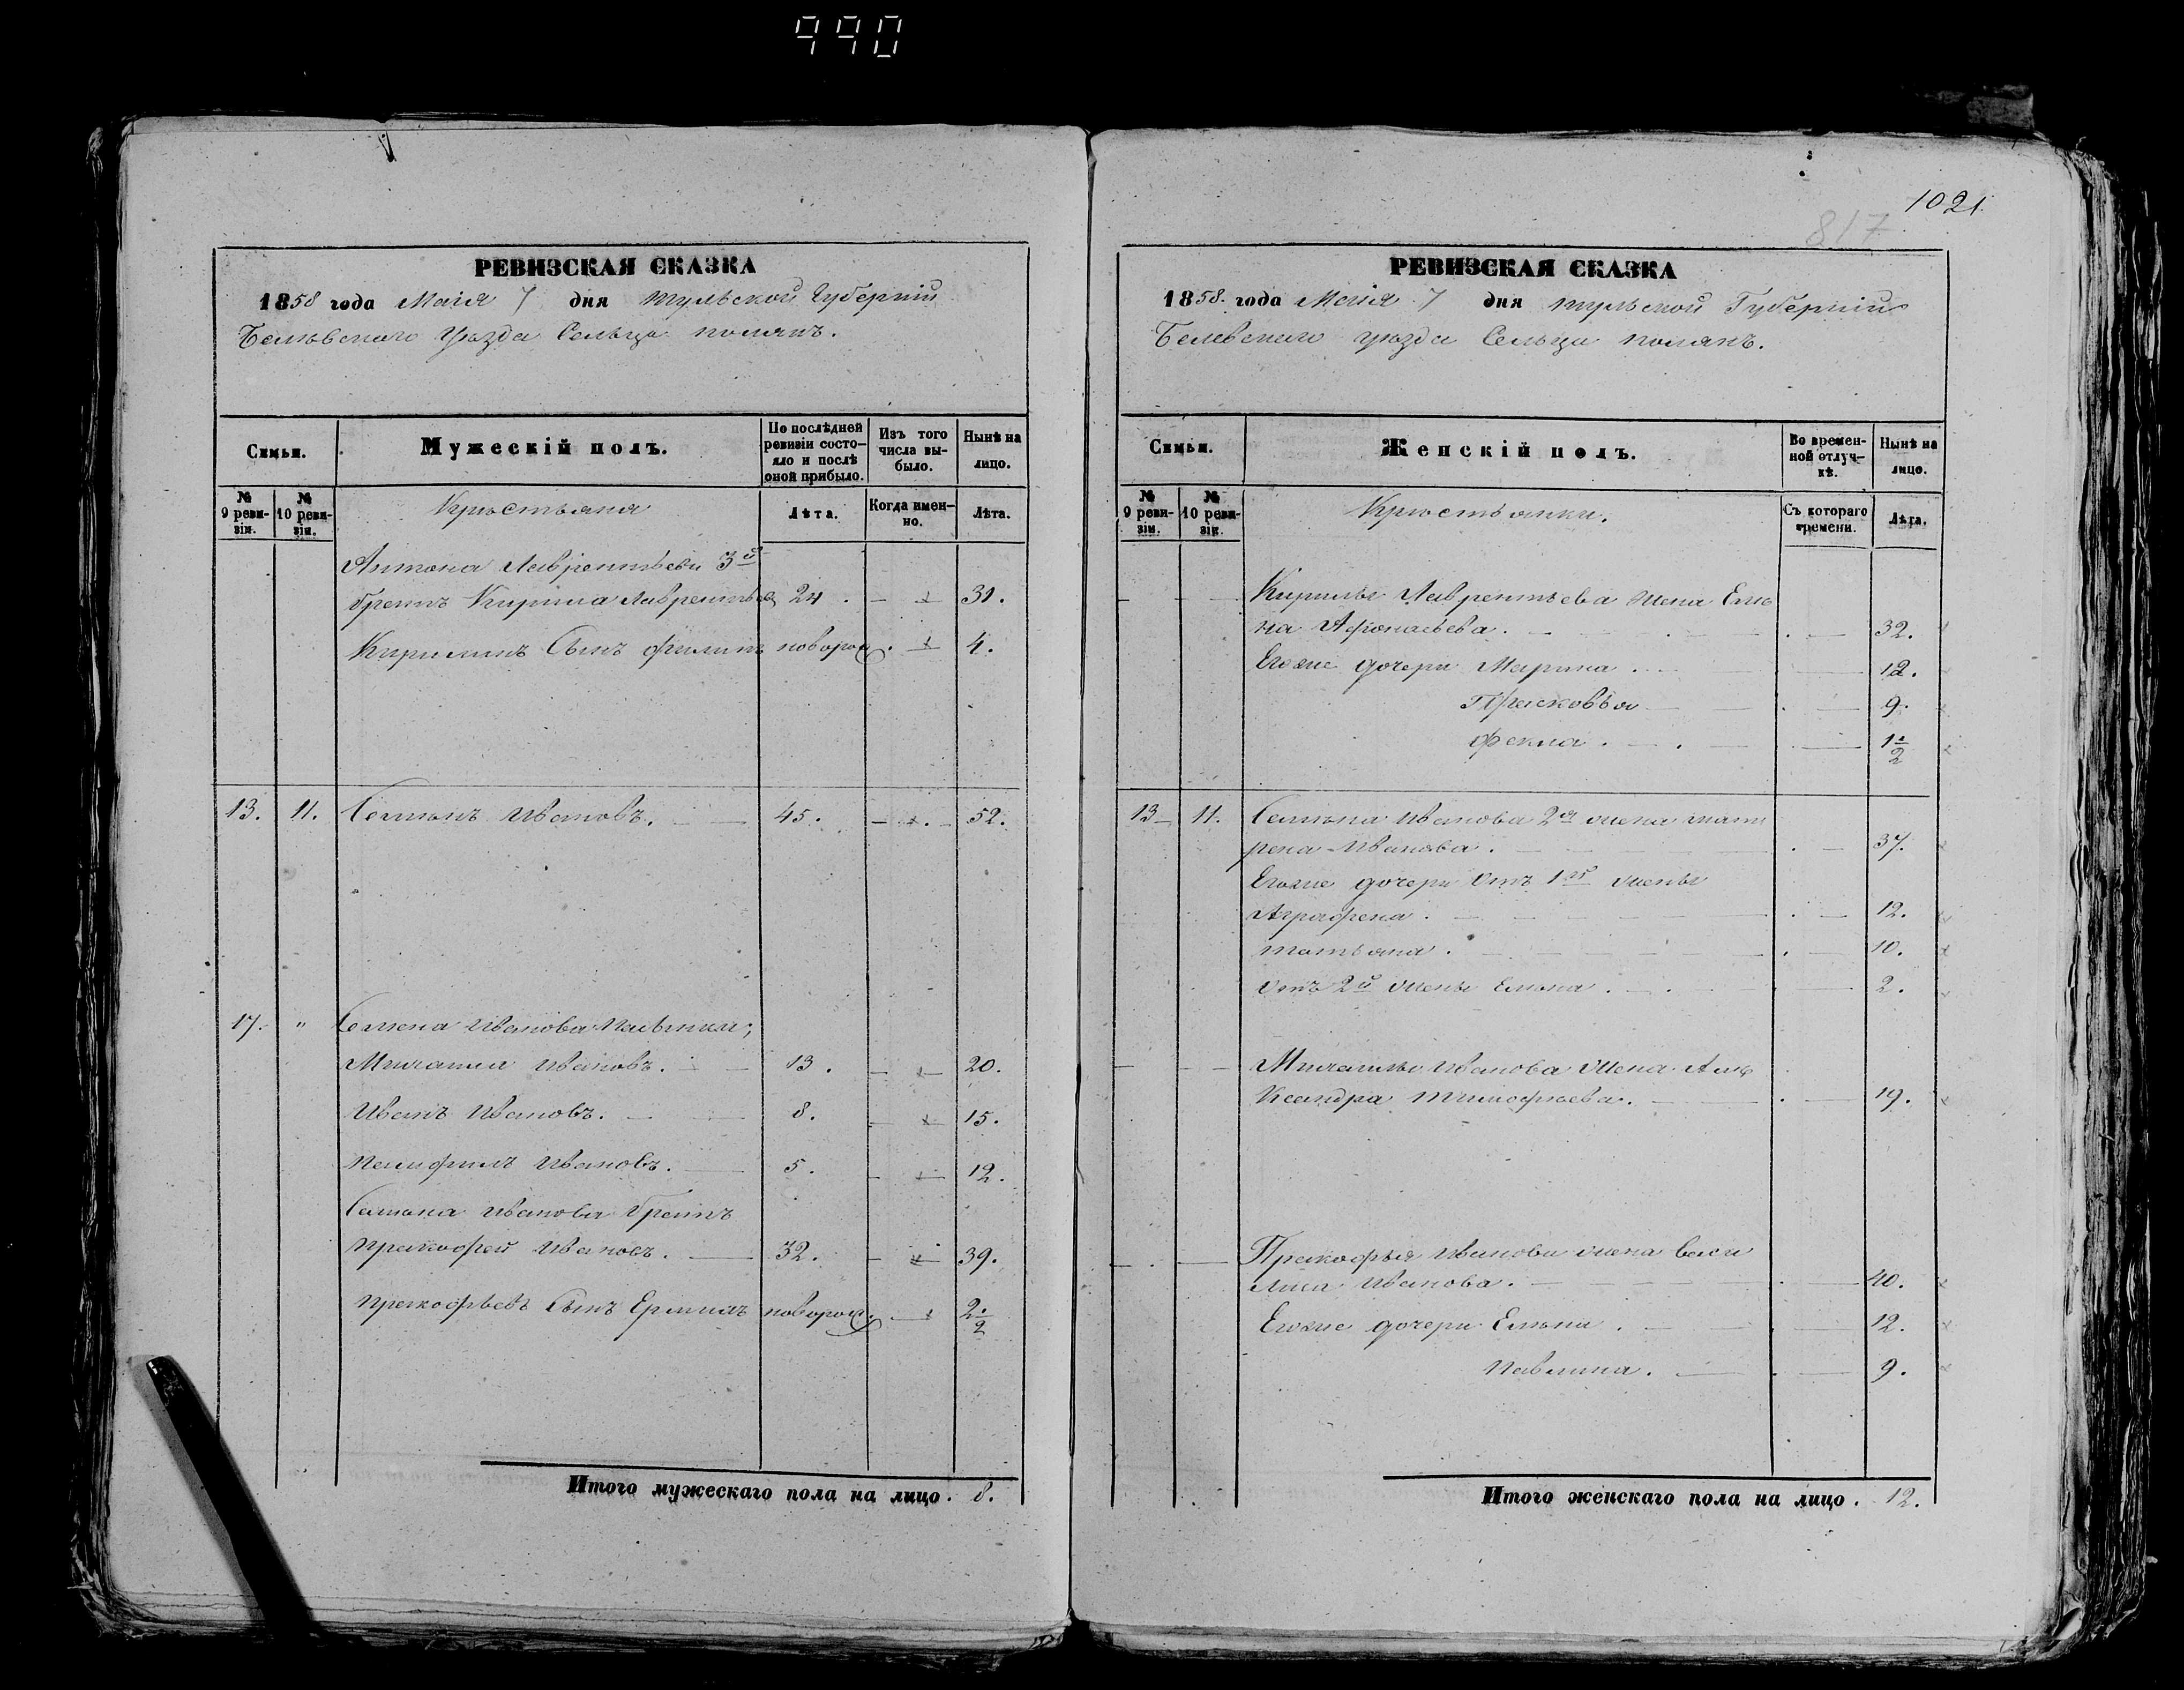 990
РЕВИЗСКАЯ СКАЗКА
1858 года Маія 7 дня Тульской Губерніи
Белевскаго уѣзда Сельца Полянъ.
Семьи.
Мужескій полъ.
По послѣдней ревизіи состояло и послѣ оной прибыло.
Изъ того числа выбыло.
Нынѣ на лицо.
№ 9 ревизіи.
№ 10 ревизіи.
Крѣстьяна
Лѣта.
Когда именно.
Лѣта.
Антона Лаврентьева 3й
братъ Кирила Лаврентьев 24. 31.
Кириллинъ Сынъ Филипъ новорож. 4.
13. 11. Семѣнъ Ивановъ. 45. 52.
17. " Семена Иванова Пасынки;
Михаила Ивановъ. 13. 20.
Иванъ Ивановъ. 8. 15.
Памфилъ Ивановъ. 5. 12.
Семѣна Иванова братъ
Пракофей Ивановъ. 32. 39.
Пракофьевъ Сынъ Ермилъ новорож. 2 1/2
Итого мужескаго пола на лицо. 8.
1021.
817
РЕВИЗСКАЯ СКАЗКА
1858. года Маія 7 дня Тульской Губерніи
Белевскаго уѣзда Сельца Полянъ.
Семьи.
Женскій полъ.
Во временной отлучкѣ.
Нынѣ на лицо.
№ 9 ревизіи.
№ 10 ревизіи.
Крѣстьянки.
Съ котораго времени.
Лѣта.
Кирилы Лаврентьева жена Еле
на Афонасьева. 32.
Егоже дочери Марина 12.
Прасковья 9.
Фекла. 1 1/2
13 11. Семѣна Иванова 2я жена Мат
рена Иванова. 37.
Егоже дочери Отъ 1й жены
Аграфена. 12.
Татьяна. 10.
Отъ 2й жены Елѣна. 2.
Михаилы Иванова жена Але
Ксандра Тимофѣева. 19.
Пракофья Иванова жена Васи
лиса Иванова. 40.
Егоже дочери Елѣна. 12.
Павлина. 9.
Итого женскаго пола на лицо. 12.